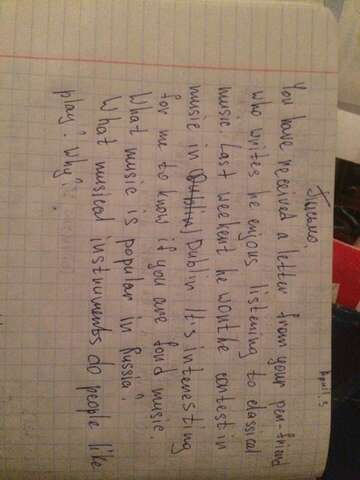 April 3
Письмо.
You have received a letter from your pen-friend
who writes he enjoys listening to classical
music. Last weekent he won the contest in
music in Dublin. It's interesting
for me to know if you are fond music.
What music is popular in Russia?
What musical instruments do people like
play? Why?